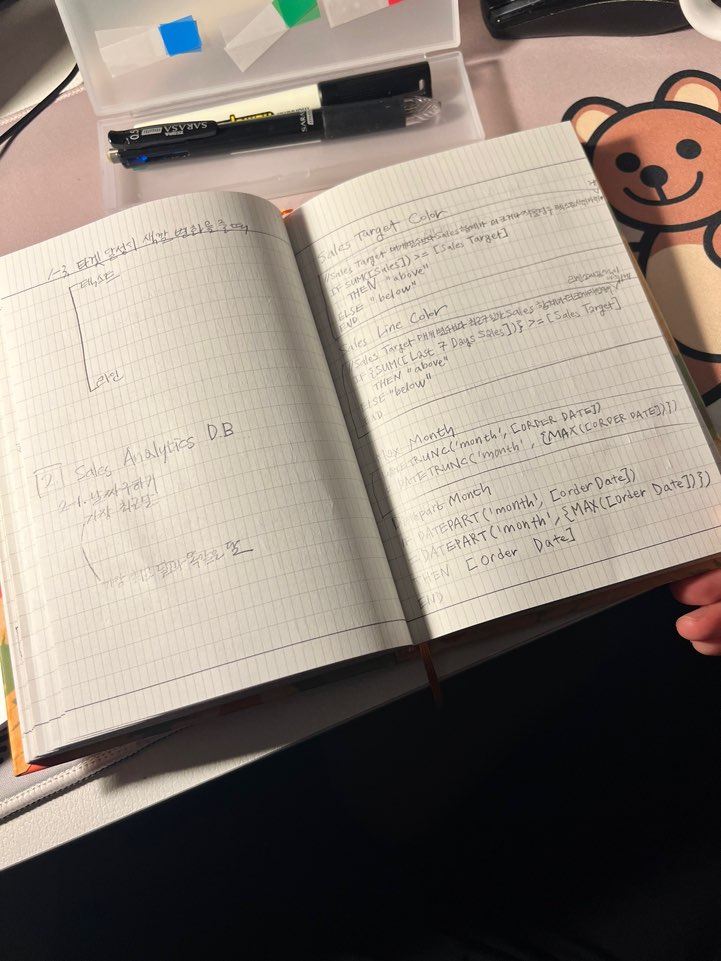 SARASA
0.5
1-3 타겟 달성시 색깔 변화를 줄 때
텍스트
라인
2. Sales Analytics D.B
2-1. 날짜구하기
가장 최근달
가장 최근 달과 똑같은 달
Sales Target Color
//Sales Target 매개변수보다 Sales 합계가
IF SUM([Sales]) >= [Sales Target]
THEN "above"
ELSE "below"
END
Sales Line Color
//Sales Target 매개변수보다 최근 Sales
IF {SUM([Last 7 Days Sales])} >= [Sales Target]
THEN "above"
ELSE "below"
END
Month
DATETRUNC('month', [ORDER DATE])
DATETRUNC('month', {MAX([ORDER DATE])})
Month
DATEPART('month', [order Date])
DATEPART('month', {MAX([order Date])})
THEN [Order Date]
END